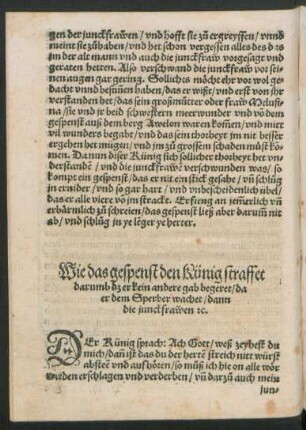 gen der junckfrawen / vnd hofft sie zů ergreyffen / vnnd
meint sie zůhaben / vnd het schon vergessen alles des das
jm der alt mann vnd auch die junckfraw vorgesagt vnd
geraten hetten. Also verschwand die junckfraw vor sei-
nen augen gar gering. Solliches möcht ehr vor wol ge-
dacht vnnd besunnen haben / das er wißt / vnd erst von jhr
verstanden het / das sein großmůtter oder fraw Melusi-
na / sie vnd jr beid schwestern meerwunder vnd võ dem
gespenst auß dem berg Awelon waren kom̃en / vnd mier
vil wunders begabe / vnd das sein thorheyt jm nit besser
ergehen het mügen / vnd jm zů grossem schaden müst kõ-
men. Da nun diser Künig sich sollicher thorheyt het vn-
derstandẽ / vnd die junckfrawẽ verschwunden was / so
kompt ein gespenst / das er nit ein stick gesahe / vñ schlůg
in ernider / vnd so gar hart / vnd vnbescheidenlich übel /
das er alle viere võ jm streckt. Er fieng an jemerlich vñ
erbärmlich zů schreien / das gespenst ließ aber darum̃ nit
ab / vnd schlůg in ye lẽger ye herter.
Wie das gespenst den Künig straffet
darumb dz er kein andere gab begeret / da
er dem Sperber wachet / dann
die junckfrawen ꝛc.
DEr Künig sprach: Ach Gott / weß zeyhest du
mich / dañ ist das du der hertẽ streich nitt würst
abstẽ vnd auffhören / so můß ich hie on alle wör
den erschlagen vnd verderben / vñ darzů auch mein
jun-